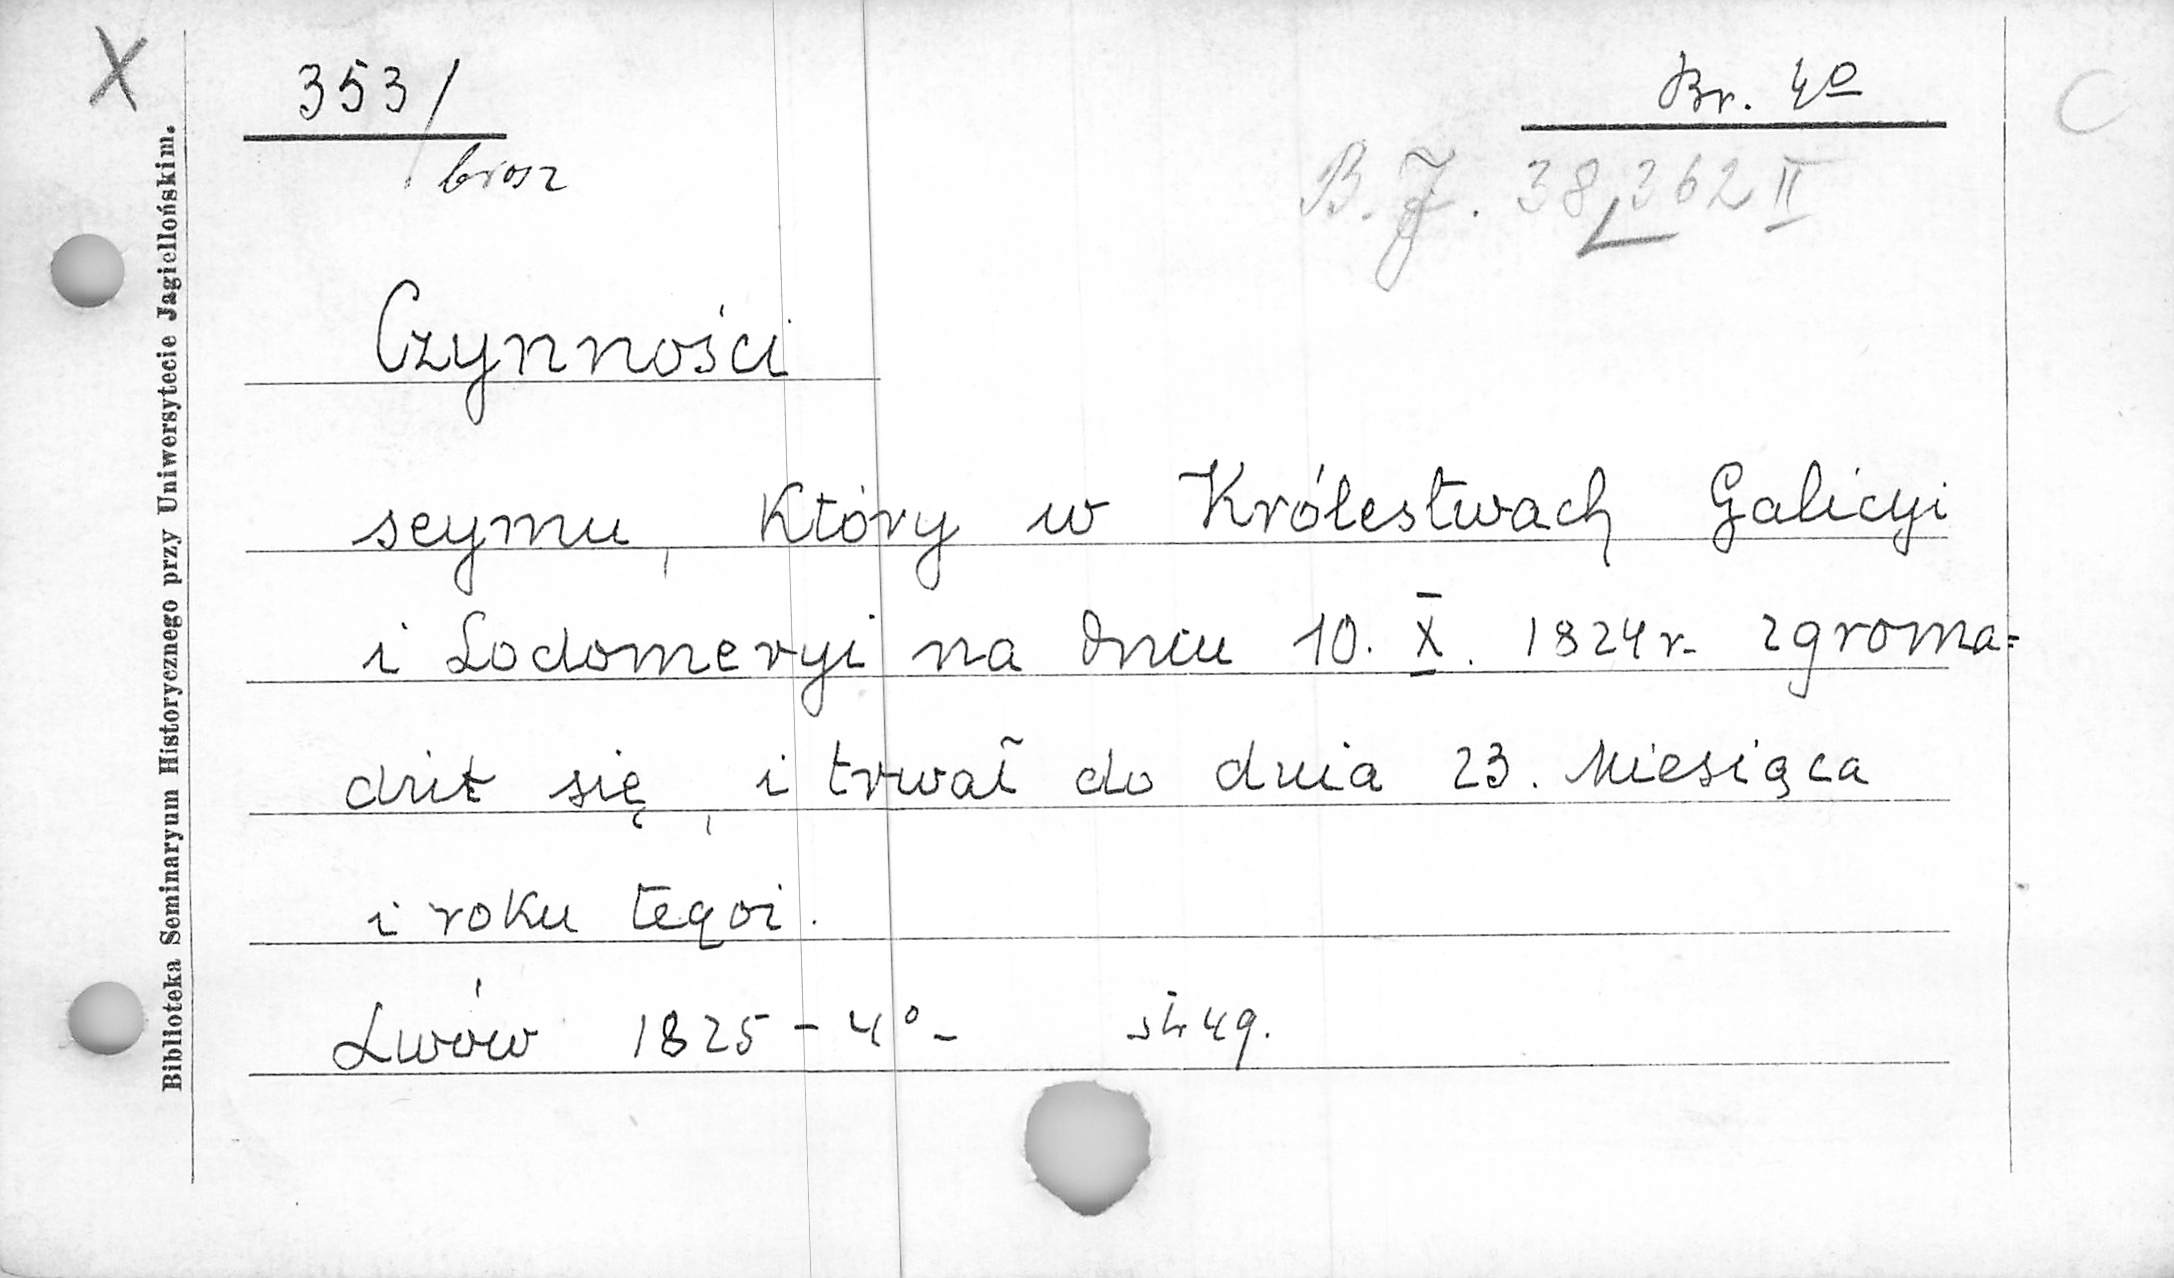 X
353/
brosz
Br. 4º
C
B. J. 38362 II
Czynności
seymu, który w Królestwach Galicyi
i Lodomeryi na dniu 10. X. 1824 r. zgroma=
dził się, i trwał do dnia 23. Miesiąca
i roku tegoż.
Lwów 1825 - 4º - str 49.
Biblioteka Seminaryum Historycznego przy Uniwersytecie Jagiellońskim.